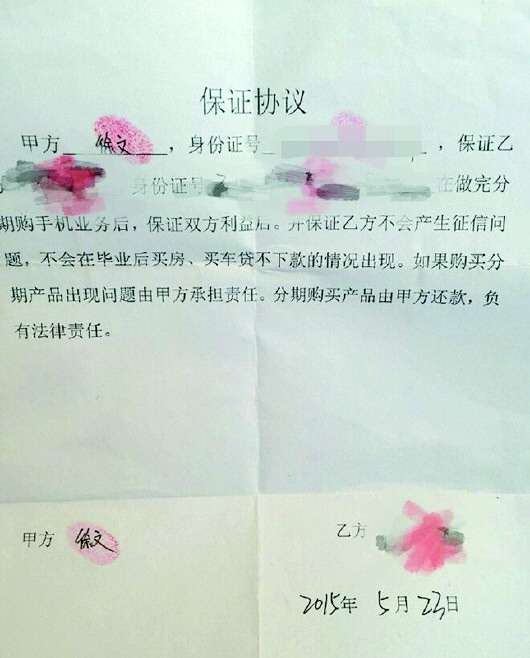 保证协议
甲方 徐文 ，身份证号 ，保证乙
身份证号 在做完分
期购手机业务后，保证双方利益后。并保证乙方不会产生征信问
题，不会在毕业后买房、买车贷不下款的情况出现。如果购买分
期产品出现问题由甲方承担责任。分期购买产品由甲方还款，负
有法律责任。
甲方 徐文
乙方
2015年 5月 23日